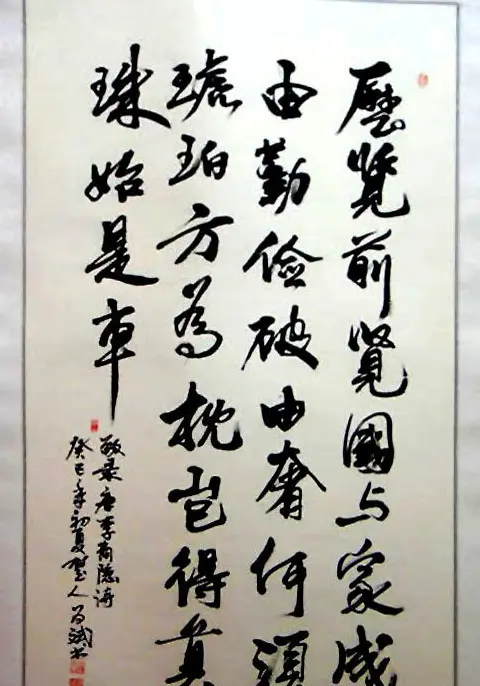 歷覽前覽國与家成
由勤儉破由奢何須
琥珀方為枕豈得真
珠始是車
敬录唐李商隱詩
癸巳年初夏